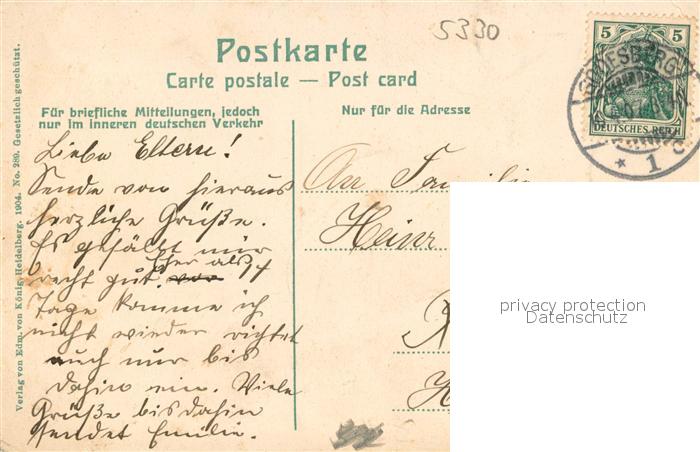 5330
Postkarte
Carte postale — Post card
Für briefliche Mitteilungen, jedoch
nur im inneren deutschen Verkehr
Nur für die Adresse
5 5
DEUTSCHES REICH
GODESBERG
* 1 C
Verlag von Edm. von König, Heidelberg. 1904. No. 289. Gesetzlich geschützt.
Liebe Eltern!
Sende von hieraus
herzliche Grüße.
Es gefällt mir
recht gut. Eher als 14
Tage komme ich
nicht wieder richtet
euch nur bis
dahin ein. Viele
Grüße bis dahin
sendet Emilie.
An Familie
Heinr
H
privacy protection
Datenschutz